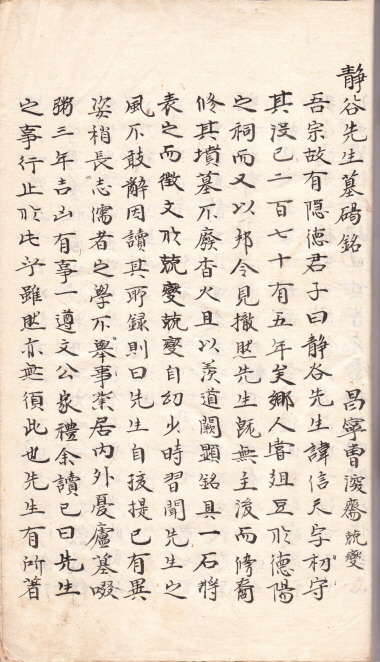 靜谷先生墓碣銘 昌寧曺深齋兢燮
吾宗故有隱德君子曰靜谷先生諱信天字初守
其沒已二百七十有五年矣鄕人嘗俎豆於德陽
之祠而又以邦令見撤然先生旣無主後而傍裔
修其墳墓不廢香火且以羨道闕顯銘具一石將
表之而徵文於兢燮兢燮自幼少時習聞先生之
風不敢辭因讀其所錄則曰先生自孩提已有異
姿稍長志儒者之學不擧事業居內外憂廬墓啜
粥三年吉凶有事一遵文公家禮余讀已曰先生
之事行止於此乎雖然亦無須此也先生有所著